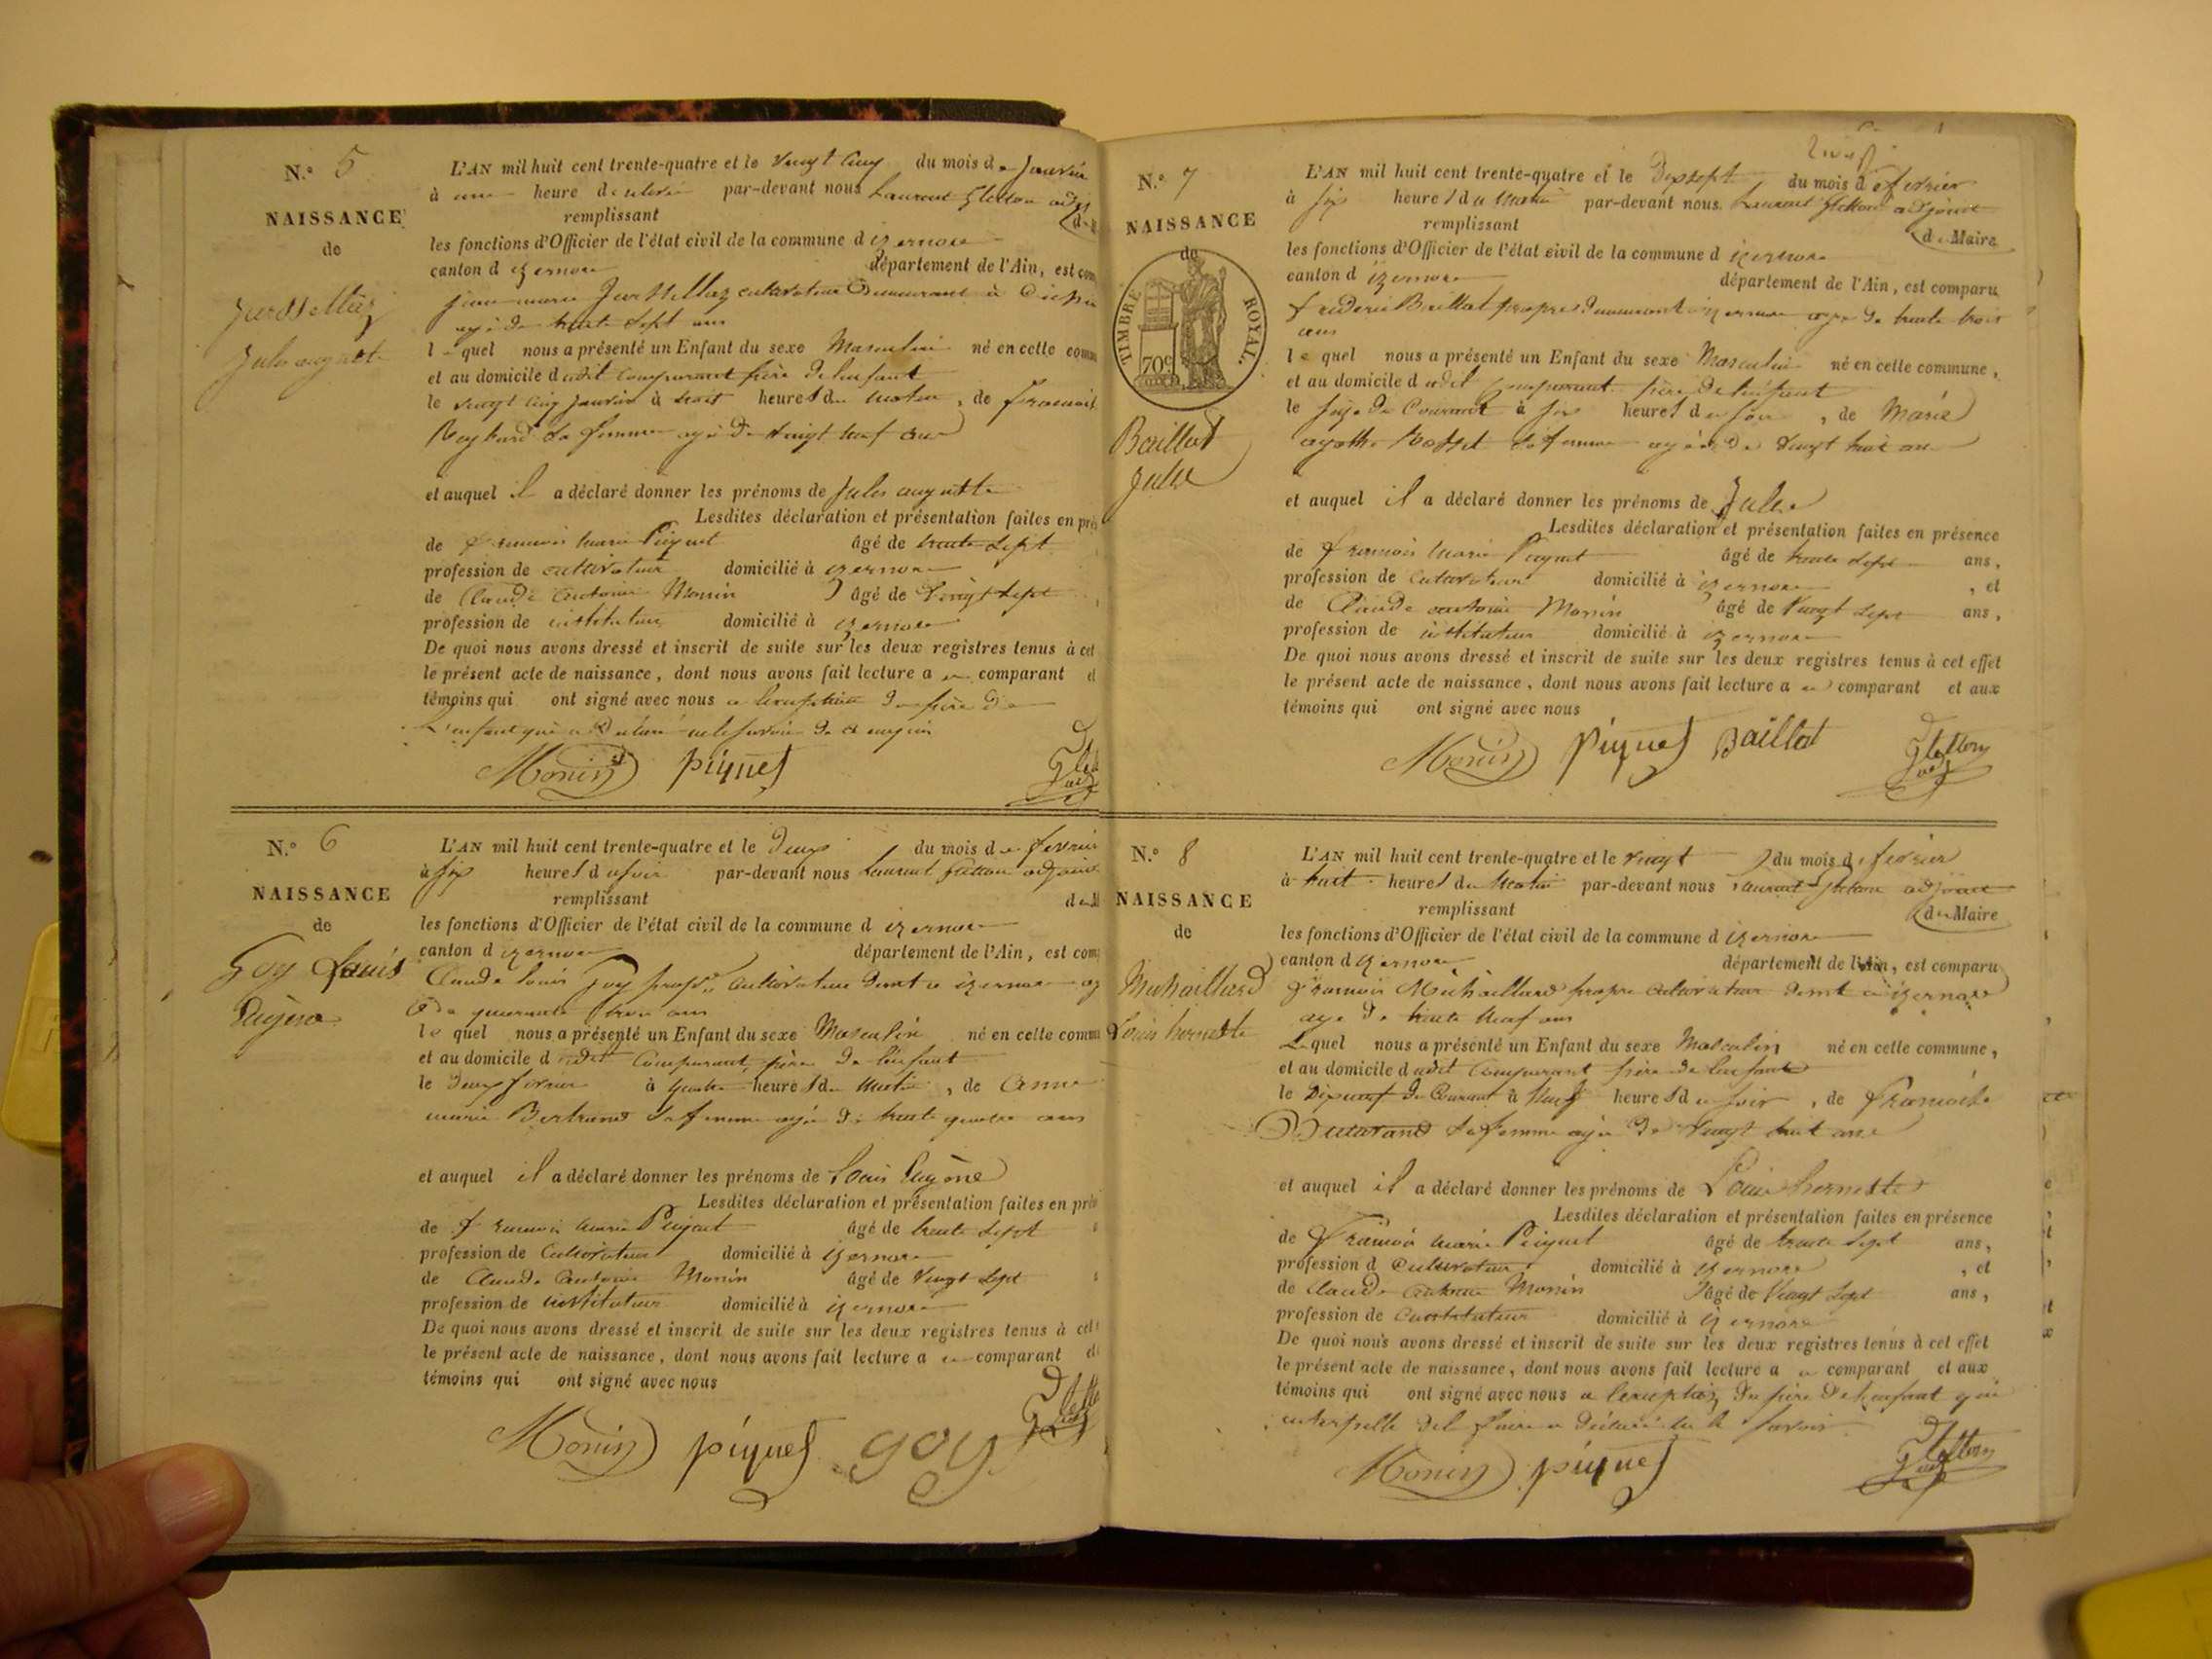 N.° 5
NAISSANCE
de
Jules auguste
L'AN mil huit cent trente-quatre et le vingt cinq du mois de janvier
à une heure de par-devant nous Laurent
remplissant
les fonctions d'Officier de l'état civil de la commune d izernore
canton d izernore département de l'Ain, est com
jean marie cultivateur demeurant à
agé de trente sept ans
le quel nous a présenté un Enfant du sexe Masculin né en cette comm
et au domicile dudit comparant père de l'enfant
le vingt cinq janvier à heures du matin, de
sa femme agée de vingt neuf ans
et auquel il a déclaré donner les prénoms de Jules auguste
Lesdites déclaration et présentation faites en prés
de françois marie Piquet âgé de trente sept
profession de cultivateur domicilié à izernore
de Claude antoine Monin âgé de vingt sept
profession de instituteur domicilié à izernore
De quoi nous avons dressé et inscrit de suite sur les deux registres tenus à cet
le présent acte de naissance, dont nous avons fait lecture a comparant et
témoins qui ont signé avec nous a l'exception du père de
L'enfant qui a déclaré ne le savoir de
Monin piquet
N.° 6
NAISSANCE
de
Goy Louis
Eugène
L'AN mil huit cent trente-quatre et le deux du mois de février
à six heures du soir par-devant nous Laurent adjoint
remplissant
les fonctions d'Officier de l'état civil de la commune d izernore
canton d izernore département de l'Ain, est com
Claude louis Goy cultivateur demt a izernore ag
é de quarante trois ans
le quel nous a présenté un Enfant du sexe Masculin né en cette commu
et au domicile dudit comparant père de l'enfant
le deux février à quatre heures du matin, de anne
marie Bertrand sa femme agée de trente quatre ans
et auquel il a déclaré donner les prénoms de Louis Eugène
Lesdites déclaration et présentation faites en pré
de françois marie Piquet âgé de trente sept
profession de cultivateur domicilié à izernore
de Claude antoine Monin âgé de vingt sept
profession de instituteur domicilié à izernore
De quoi nous avons dressé et inscrit de suite sur les deux registres tenus à cet
le présent acte de naissance, dont nous avons fait lecture a comparant et
témoins qui ont signé avec nous
Monin piquet goy
N.° 7
NAISSANCE
de
TIMBRE ROYAL.
70c
Baillat
Jules
L'AN mil huit cent trente-quatre et le dix sept du mois de février
à six heures du matin par-devant nous Laurent adjoint
remplissant du Maire
les fonctions d'Officier de l'état civil de la commune d izernore
canton d izernore département de l'Ain, est comparu
frédéric Baillat propre demeurant izernore agé de trente trois
ans
le quel nous a présenté un Enfant du sexe Masculin né en cette commune,
et au domicile dudit comparant père de l'enfant
le du courant à six heures du soir, de Marie
agathe sa femme agée de vingt huit ans
et auquel il a déclaré donner les prénoms de Jules
Lesdites déclaration et présentation faites en présence
de françois marie Piquet âgé de trente sept ans,
profession de cultivateur domicilié à izernore, et
de Claude antoine Monin âgé de vingt sept ans,
profession de instituteur domicilié à izernore
De quoi nous avons dressé et inscrit de suite sur les deux registres tenus à cet effet
le présent acte de naissance, dont nous avons fait lecture a comparant et aux
témoins qui ont signé avec nous
Monin piquet Baillat
N.° 8
NAISSANCE
de
Michaillard
Louis herneste
L'AN mil huit cent trente-quatre et le vingt du mois de février
à huit heures du matin par-devant nous Laurent adjoint
remplissant du Maire
les fonctions d'Officier de l'état civil de la commune d izernore
canton d izernore département de l'Ain, est comparu
françois Michaillard propre cultivateur demt a izernore
agé de trente neuf ans
Lequel nous a présenté un Enfant du sexe Masculin né en cette commune,
et au domicile dudit comparant père de l'enfant
le dix neuf du courant à neuf heures du soir, de françoise
sa femme agée de vingt huit ans
et auquel il a déclaré donner les prénoms de Louis herneste
Lesdites déclaration et présentation faites en présence
de françois marie Piquet âgé de trente sept ans,
profession d cultivateur domicilié à izernore, et
de Claude antoine Monin âgé de vingt sept ans,
profession de instituteur domicilié à izernore
De quoi nous avons dressé et inscrit de suite sur les deux registres tenus à cet effet
le présent acte de naissance, dont nous avons fait lecture a comparant et aux
témoins qui ont signé avec nous a l'exception du père de l'enfant qui
interpellé de le faire a déclaré ne le savoir
Monin piquet